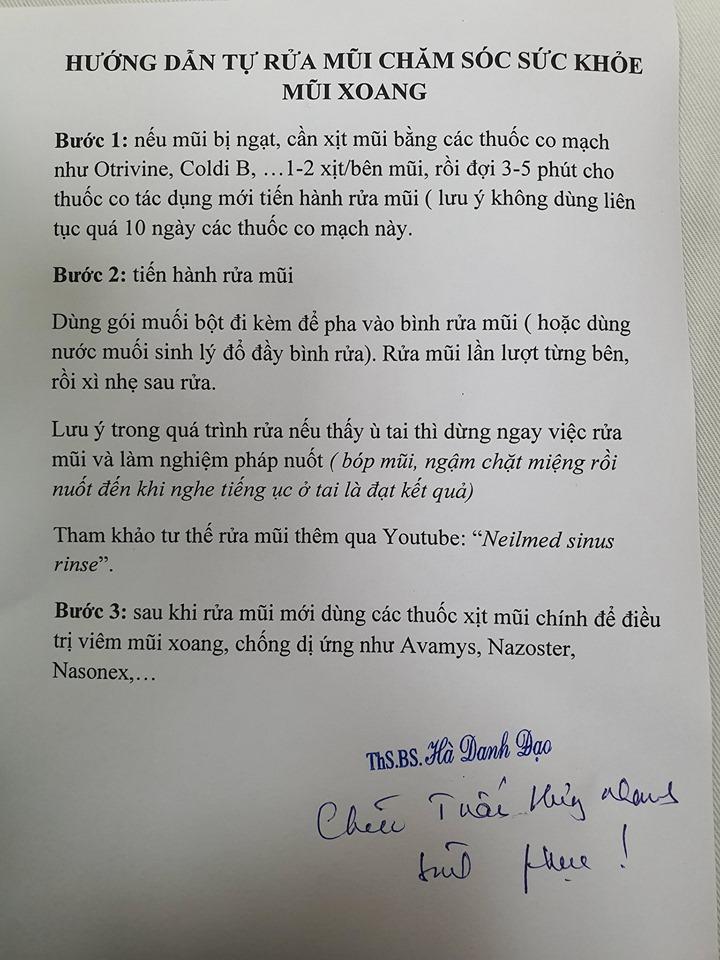 HƯỚNG DẪN TỰ RỬA MŨI CHĂM SÓC SỨC KHỎE
MŨI XOANG
Bước 1: nếu mũi bị ngạt, cần xịt mũi bằng các thuốc co mạch
như Otrivine, Coldi B, …1-2 xịt/bên mũi, rồi đợi 3-5 phút cho
thuốc co tác dụng mới tiến hành rửa mũi ( lưu ý không dùng liên
tục quá 10 ngày các thuốc co mạch này.
Bước 2: tiến hành rửa mũi
Dùng gói muối bột đi kèm để pha vào bình rửa mũi ( hoặc dùng
nước muối sinh lý đổ đầy bình rửa). Rửa mũi lần lượt từng bên,
rồi xì nhẹ sau rửa.
Lưu ý trong quá trình rửa nếu thấy ù tai thì dừng ngay việc rửa
mũi và làm nghiệm pháp nuốt ( bóp mũi, ngậm chặt miệng rồi
nuốt đến khi nghe tiếng ục ở tai là đạt kết quả)
Tham khảo tư thế rửa mũi thêm qua Youtube: “Neilmed sinus
rinse”.
Bước 3: sau khi rửa mũi mới dùng các thuốc xịt mũi chính để điều
trị viêm mũi xoang, chống dị ứng như Avamys, Nazoster,
Nasonex,…
ThS.BS. Hà Danh Đạo
phục !